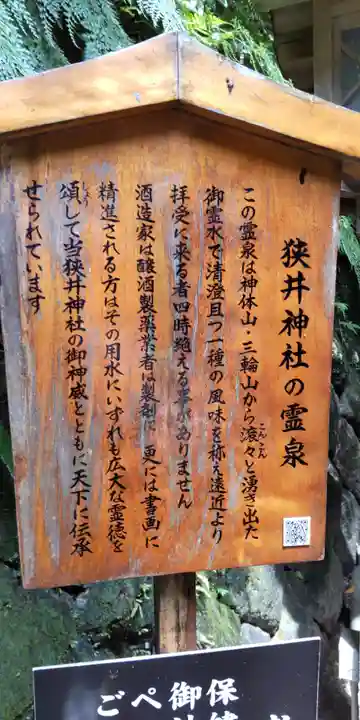 狭井神社の霊泉
この霊泉は神体山・三輪山から滾々と湧き出た
こんこん
御霊水で清澄且つ一種の風味を称え遠近より
拝受に来る者四時絶える事がありません
酒造家は醸酒製薬業者は製剤に更には書画に
精進される方はその用水にいずれも広大な霊徳を
頌して当狭井神社の御神威とともに天下に伝承
しょう
せられています
保
御
ぺ
ご